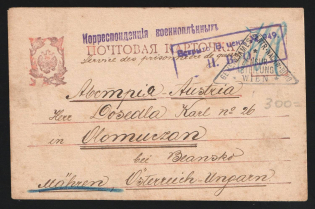 Корреспонденція военноплѣнныхъ
ПОЧТОВАЯ КАРТОЧКА
Service des prisonniers de guerre
WIEN
Австрія-Austria
Herr Dosedla Karl № 26
in
Olomuczan
bei Blansko
Mähren Österreich-Ungarn
300-